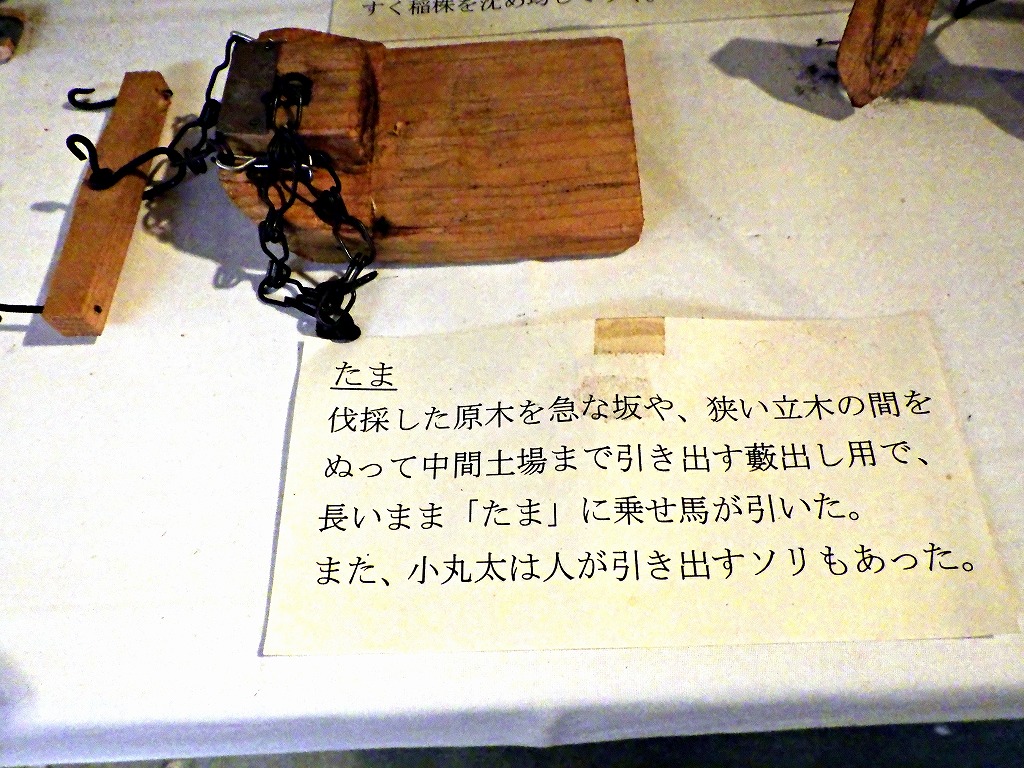 すく稲株を沈め
たま
伐採した原木を急な坂や、狭い立木の間を
ぬって中間土場まで引き出す藪出し用で、
長いまま「たま」に乗せ馬が引いた。
また、小丸太は人が引き出すソリもあった。